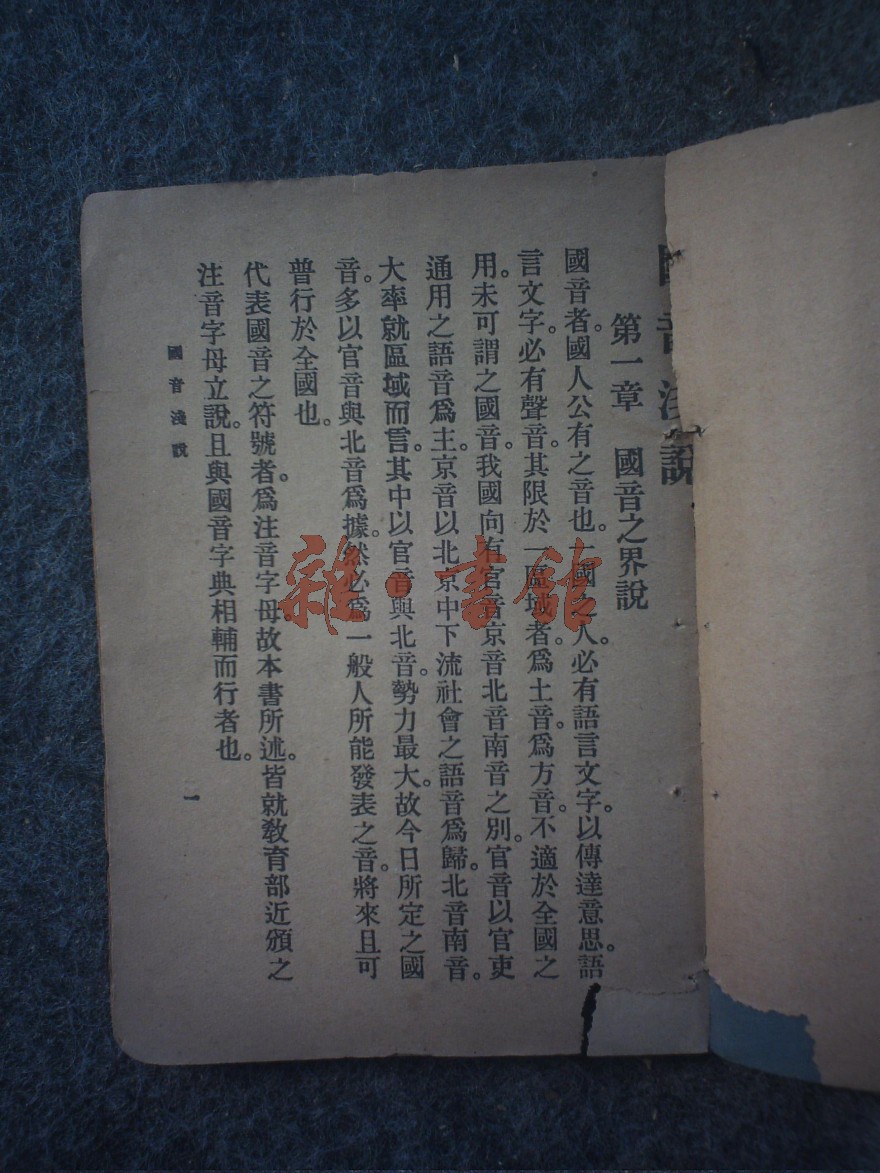 國音淺說
第一章　國音之界說
國音者。國人公有之音也。一國之人。必有語言文字。以傳達意思。語
言文字。必有聲音。其限於一區域者。爲土音。爲方音。不適於全國之
用。未可謂之國音。我國向有官音京音北音南音之別。官音以官吏
通用之語音爲主。京音以北京中下流社會之語音爲歸。北音南音。
大率就區域而言。其中以官音與北音。勢力最大。故今日所定之國
音。多以官音與北音爲據。然必爲一般人所能發表之音。將來且可
普行於全國也。
代表國音之符號者。爲注音字母。故本書所述。皆就教育部近頒之
注音字母立說。且與國音字典相輔而行者也。
國音淺說
一
雜·書館